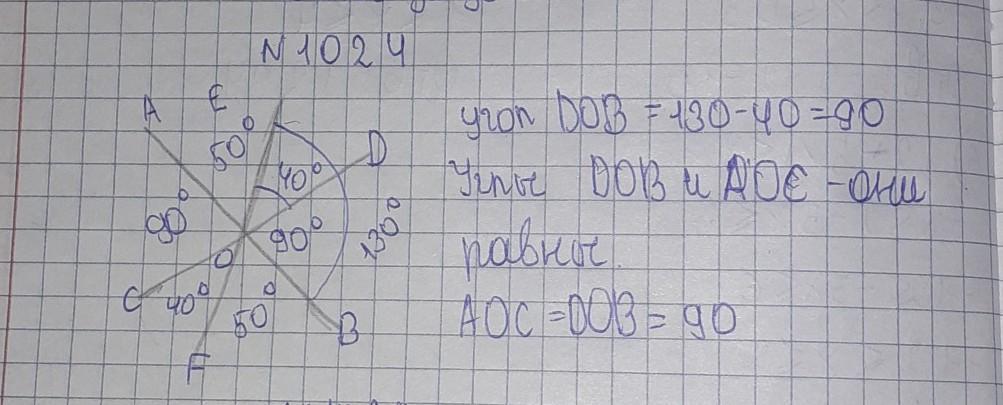 N 1024
A E
50°
40° D
90°
90°
130°
O
C 40°
50°
B
F
угол DOB = 130 - 40 = 90
Углы DOB и AOC - они
равные.
AOC = DOB = 90